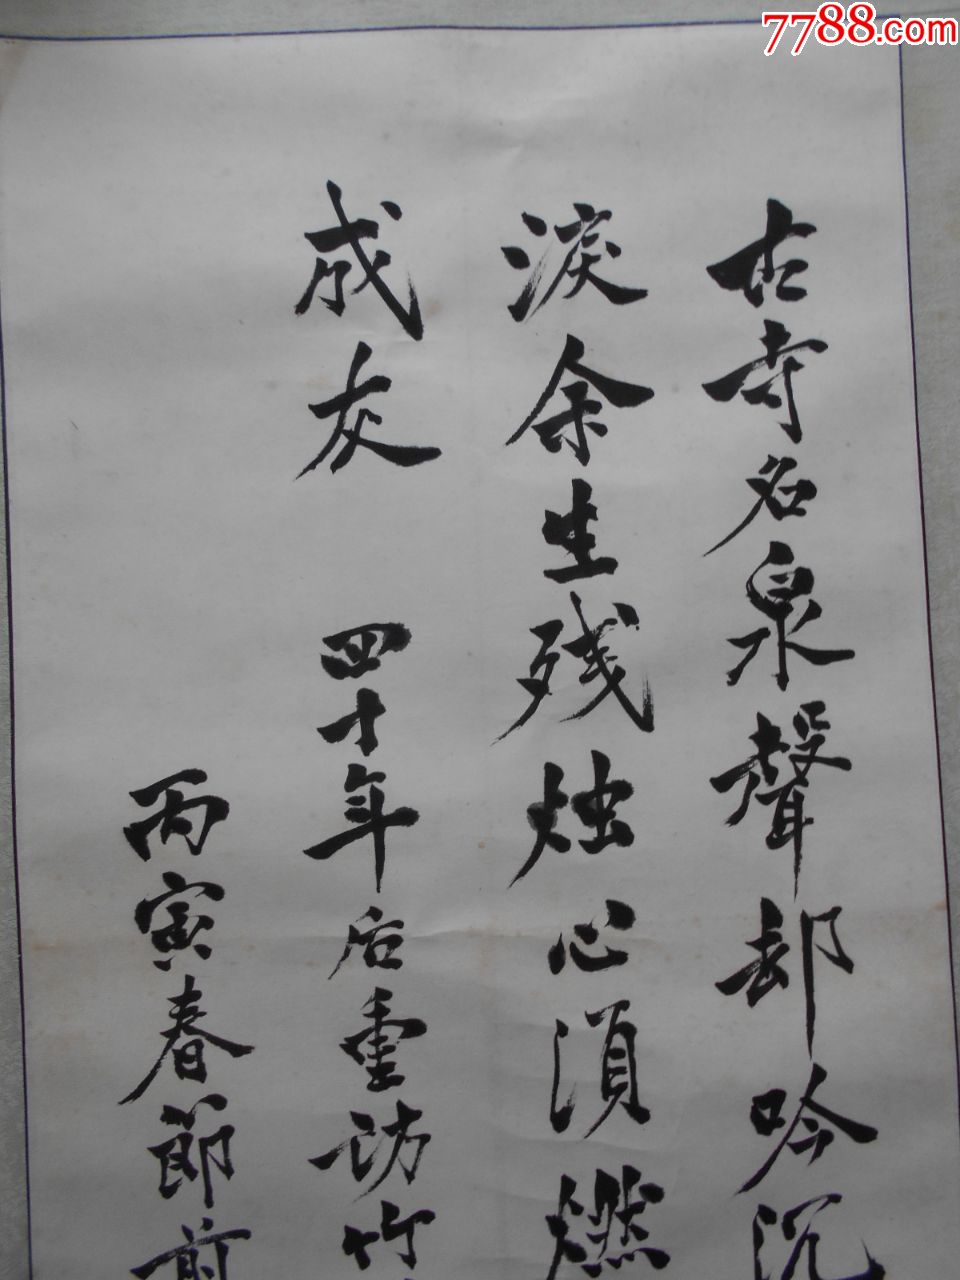 7788.com
古寺名泉聲却吟沉
淚余生残烛心須燃
成灰 四十年后重访竹
丙寅春節前